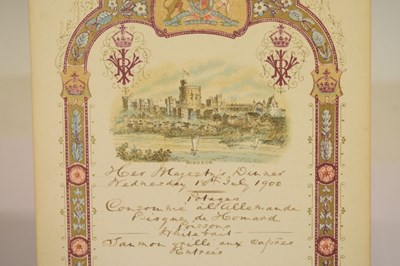 WINDSOR
Her Majesty's Dinner
Wednesday 18th July 1900
Potages
Consommé à l'Allemande
Bisque de Homard
Poissons
Whitebait
Saumon grillé aux câpres
Entrées